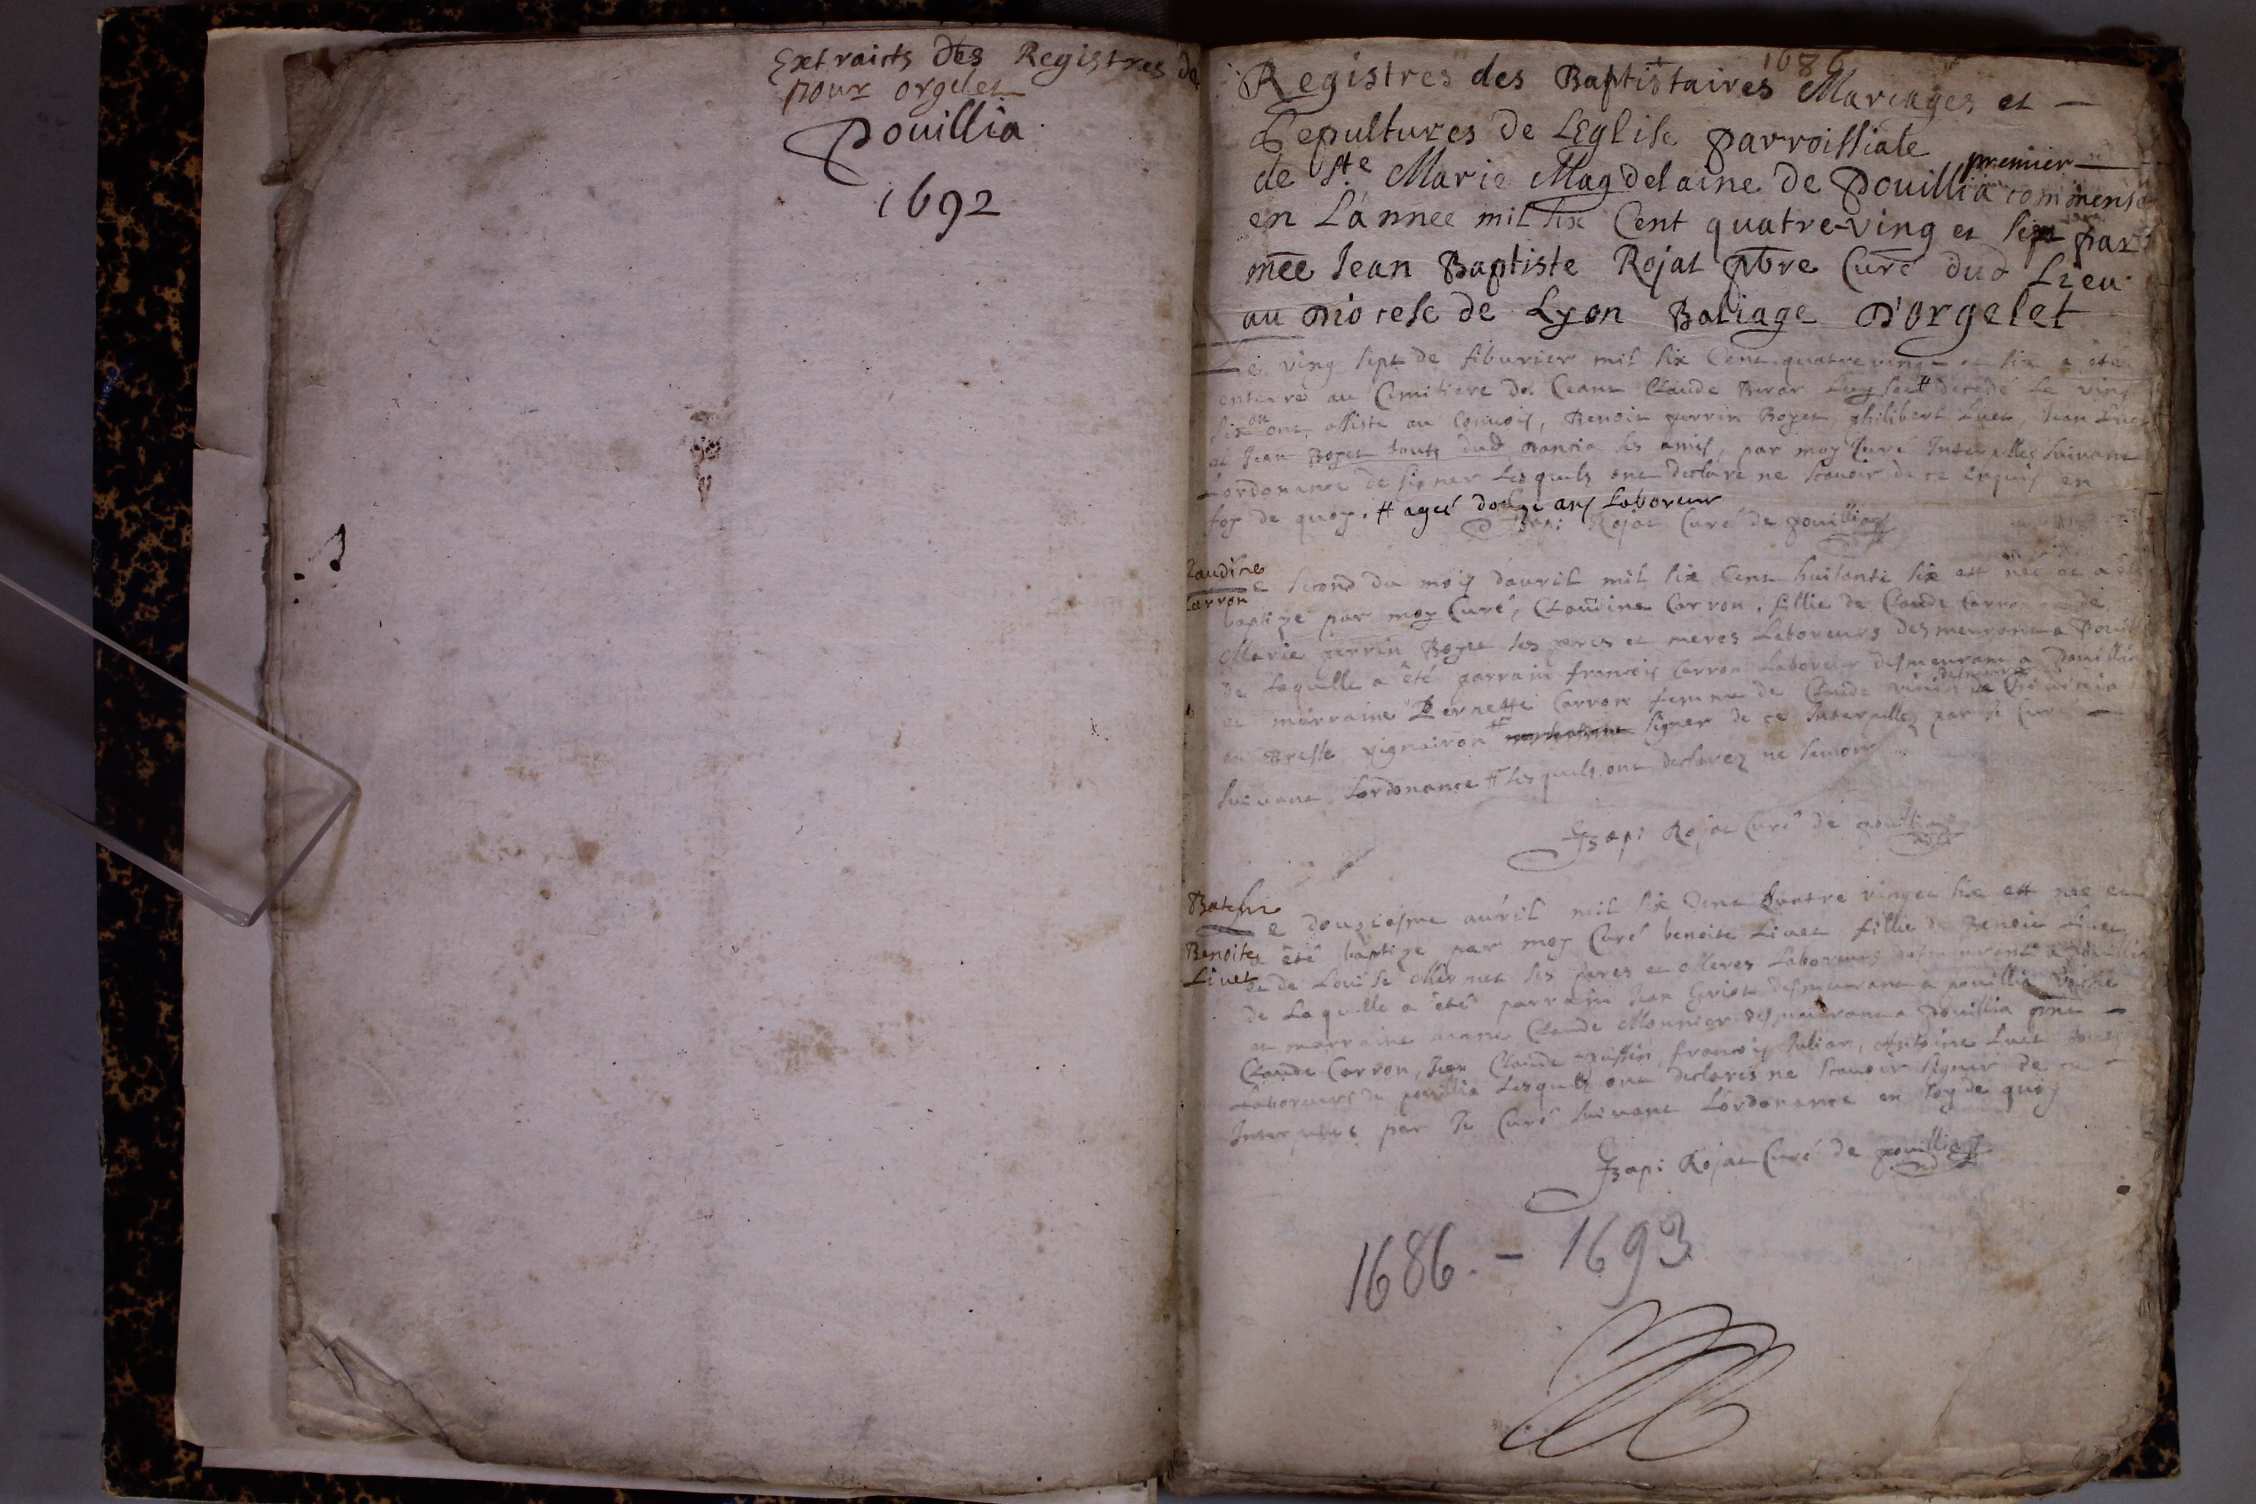 Extraicts des Registres de
pour orgelet
Pouillia
1692
1686
Registres des Baptistaires Mariages et
Sepultures de LEglise parroissiale
de Ste Marie Magdelaine de Pouillia commense
premier
en Lannee mil six Cent quatre-ving et sept par
Jean Baptiste Rojat pbre Curé dud Lieu
au Diocese de Lyon Baliage D'orgelet
ving sept de mil six Cent quatre ving et six a été
enterré au Cimitiere de Ceans Claude decedé le ving
six ont assiste au Convois, Benoit perrin Boyet, philibert Livet, Jean Livet
et Jean Boyet touts dud ses amis, par moy Curé Interpelles suivant
Lordonance de signer Lesquels ont declaré ne scavoir de ce enquis en
foy de quoy. # ageé ans Laboreur
Rojat Curé de pouillia
Claudine
Carron
second du mois dauril mil six Cent huitante six est née et a été
baptize par moy Curé, Claudine Carron, fillie de Claude Carron et de
Marie perrin Boyet ses peres et meres Laboreurs desmeurant a Pouillia
de Laquelle a êté parrain francois Carron Laboreur desmeurant a Pouillia
et marraine Pernette Carron femme de Claude
en Bresse vigneiron # signer de ce Interpelles par Je Curé
suivant Lordonance # Lesquels ont declarez ne scavoir
JBapi Rojat Curé de pouillia
Benoite
Livet
e douziesme auril mil six Cent quatre vinget six est née et
a êté baptize par moy Curé benoite Livet fillie de Benoit Livet
et de Louise ses peres et Meres Laboreurs desmeurant a Pouillia
de Laquelle a êté parrain Jean desmeurant a pouillia
et marraine Claude Monnier desmeurant a Pouillia
Claude Carron, Jean Claude francois Julian, Antoine Livet touts
Laboreurs de pouillia Lesquels ont declares ne scavoir signer de ce
par Je Curé suivant Lordonance en foy de quoy
JBapi Rojat Curé de pouillia
1686. - 1693